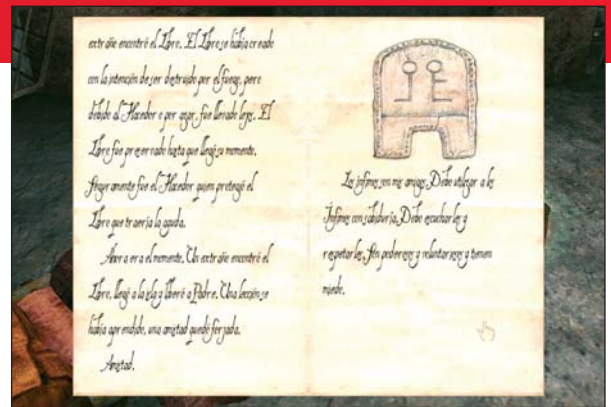 extraño encontró el Libro. El Libro se había creado
con la intención de ser destruido por el fuego, pero
debido al Hacedor o por azar, fue llevado lejos. El
Libro fue preservado hasta que llegó su momento.
Seguramente fue el Hacedor quien protegió el
Libro que traería la ayuda.
Ahora era el momento. Un extraño encontró el
Libro, llegó a la isla y liberó a Padre. Una lección se
había aprendido, una amistad quedó forjada.
Amistad.
Los ínfimos son mis amigos. Debe utilizar a los
Ínfimos con sabiduría. Debe escucharles y
respetarles. Son poderosos y voluntariosos y tienen
miedo.